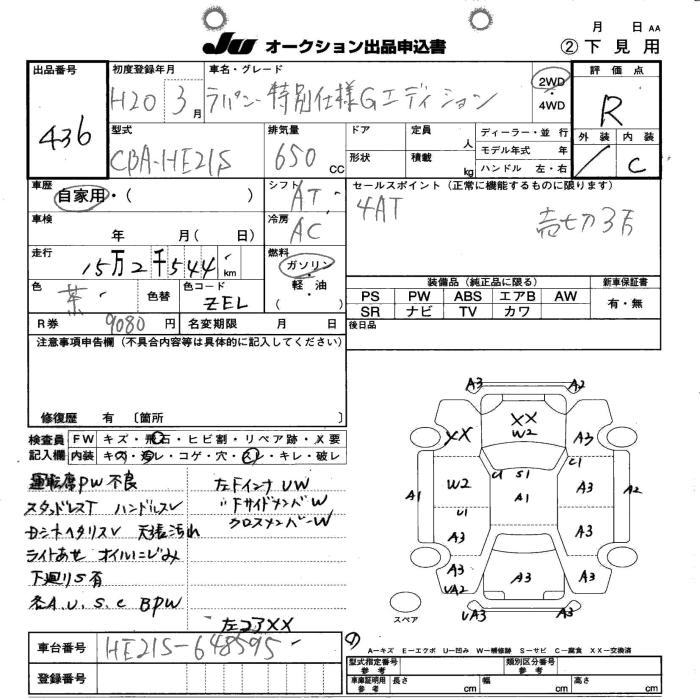 月 日 AA
JU オークション出品申込書 ②下見用
出品番号 436
初度登録年月 H20 3月
車名・グレード ラパン 特別仕様Gエディション
2WD・4WD
評価点 R
外装 / 内装 C
型式 CBA-HE21S
排気量 650 cc
ドア 定員 人
形状 積載 kg
ディーラー・並行
モデル年式 年
ハンドル 左・右
車歴 自家用・( )
シフト AT
セールスポイント(正常に機能するものに限ります)
4AT 売切り3万
車検 年 月( 日)
冷房 AC
走行 15万2千544 km
燃料 ガソリン・軽油 ( )
色 茶 色替 色コード ZEL
装備品(純正品に限る) 新車保証書
PS PW ABS エアB AW 有・無
SR ナビ TV カワ
R券 9080円 名変期限 月 日
後日品
注意事項申告欄(不具合内容等は具体的に記入してください)
修復歴 有 〔箇所 〕
検査員記入欄
FW キズ・飛石・ヒビ割・リペア跡・X要
内装 キズ・汚れ・コゲ・穴・スレ・キレ・破レ
運転席PW不良
スタッドレスT ハンドルスレ
天張汚れ
ライトあせ オイルにじみ
下廻りS有
各A.U.S.C BPW
左FインナUW
〃FサイドメンバーW
クロスメンバーW
左コアXX
A3 A2
XX XX W2 A3
U1 S1 C1
A1 W2 A1 A3 A2
U1
A3 A3
A3 A3 A3
UA2
UA3 A3
スペア
車台番号 HE21S-648595
登録番号
A-キズ E-エクボ U-凹み W-補修跡 S-サビ C-腐食 XX-交換済
型式指定番号 参考 類別区分番号 参考
車庫証明用 参考 長さ cm 幅 cm 高さ cm